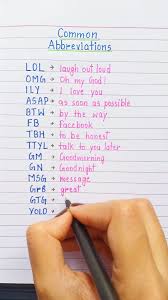 Common
Abbreviations
LOL → laugh out loud
OMG → Oh my God!
ILY → I love you
ASAP → as soon as possible
BTW → by the way
FB → Facebook
TBH → to be honest
TTYL → talk to you later
GM → Goodmorning
GN → Goodnight
MSG → message
Gr8 → great
GTG →
YOLO →